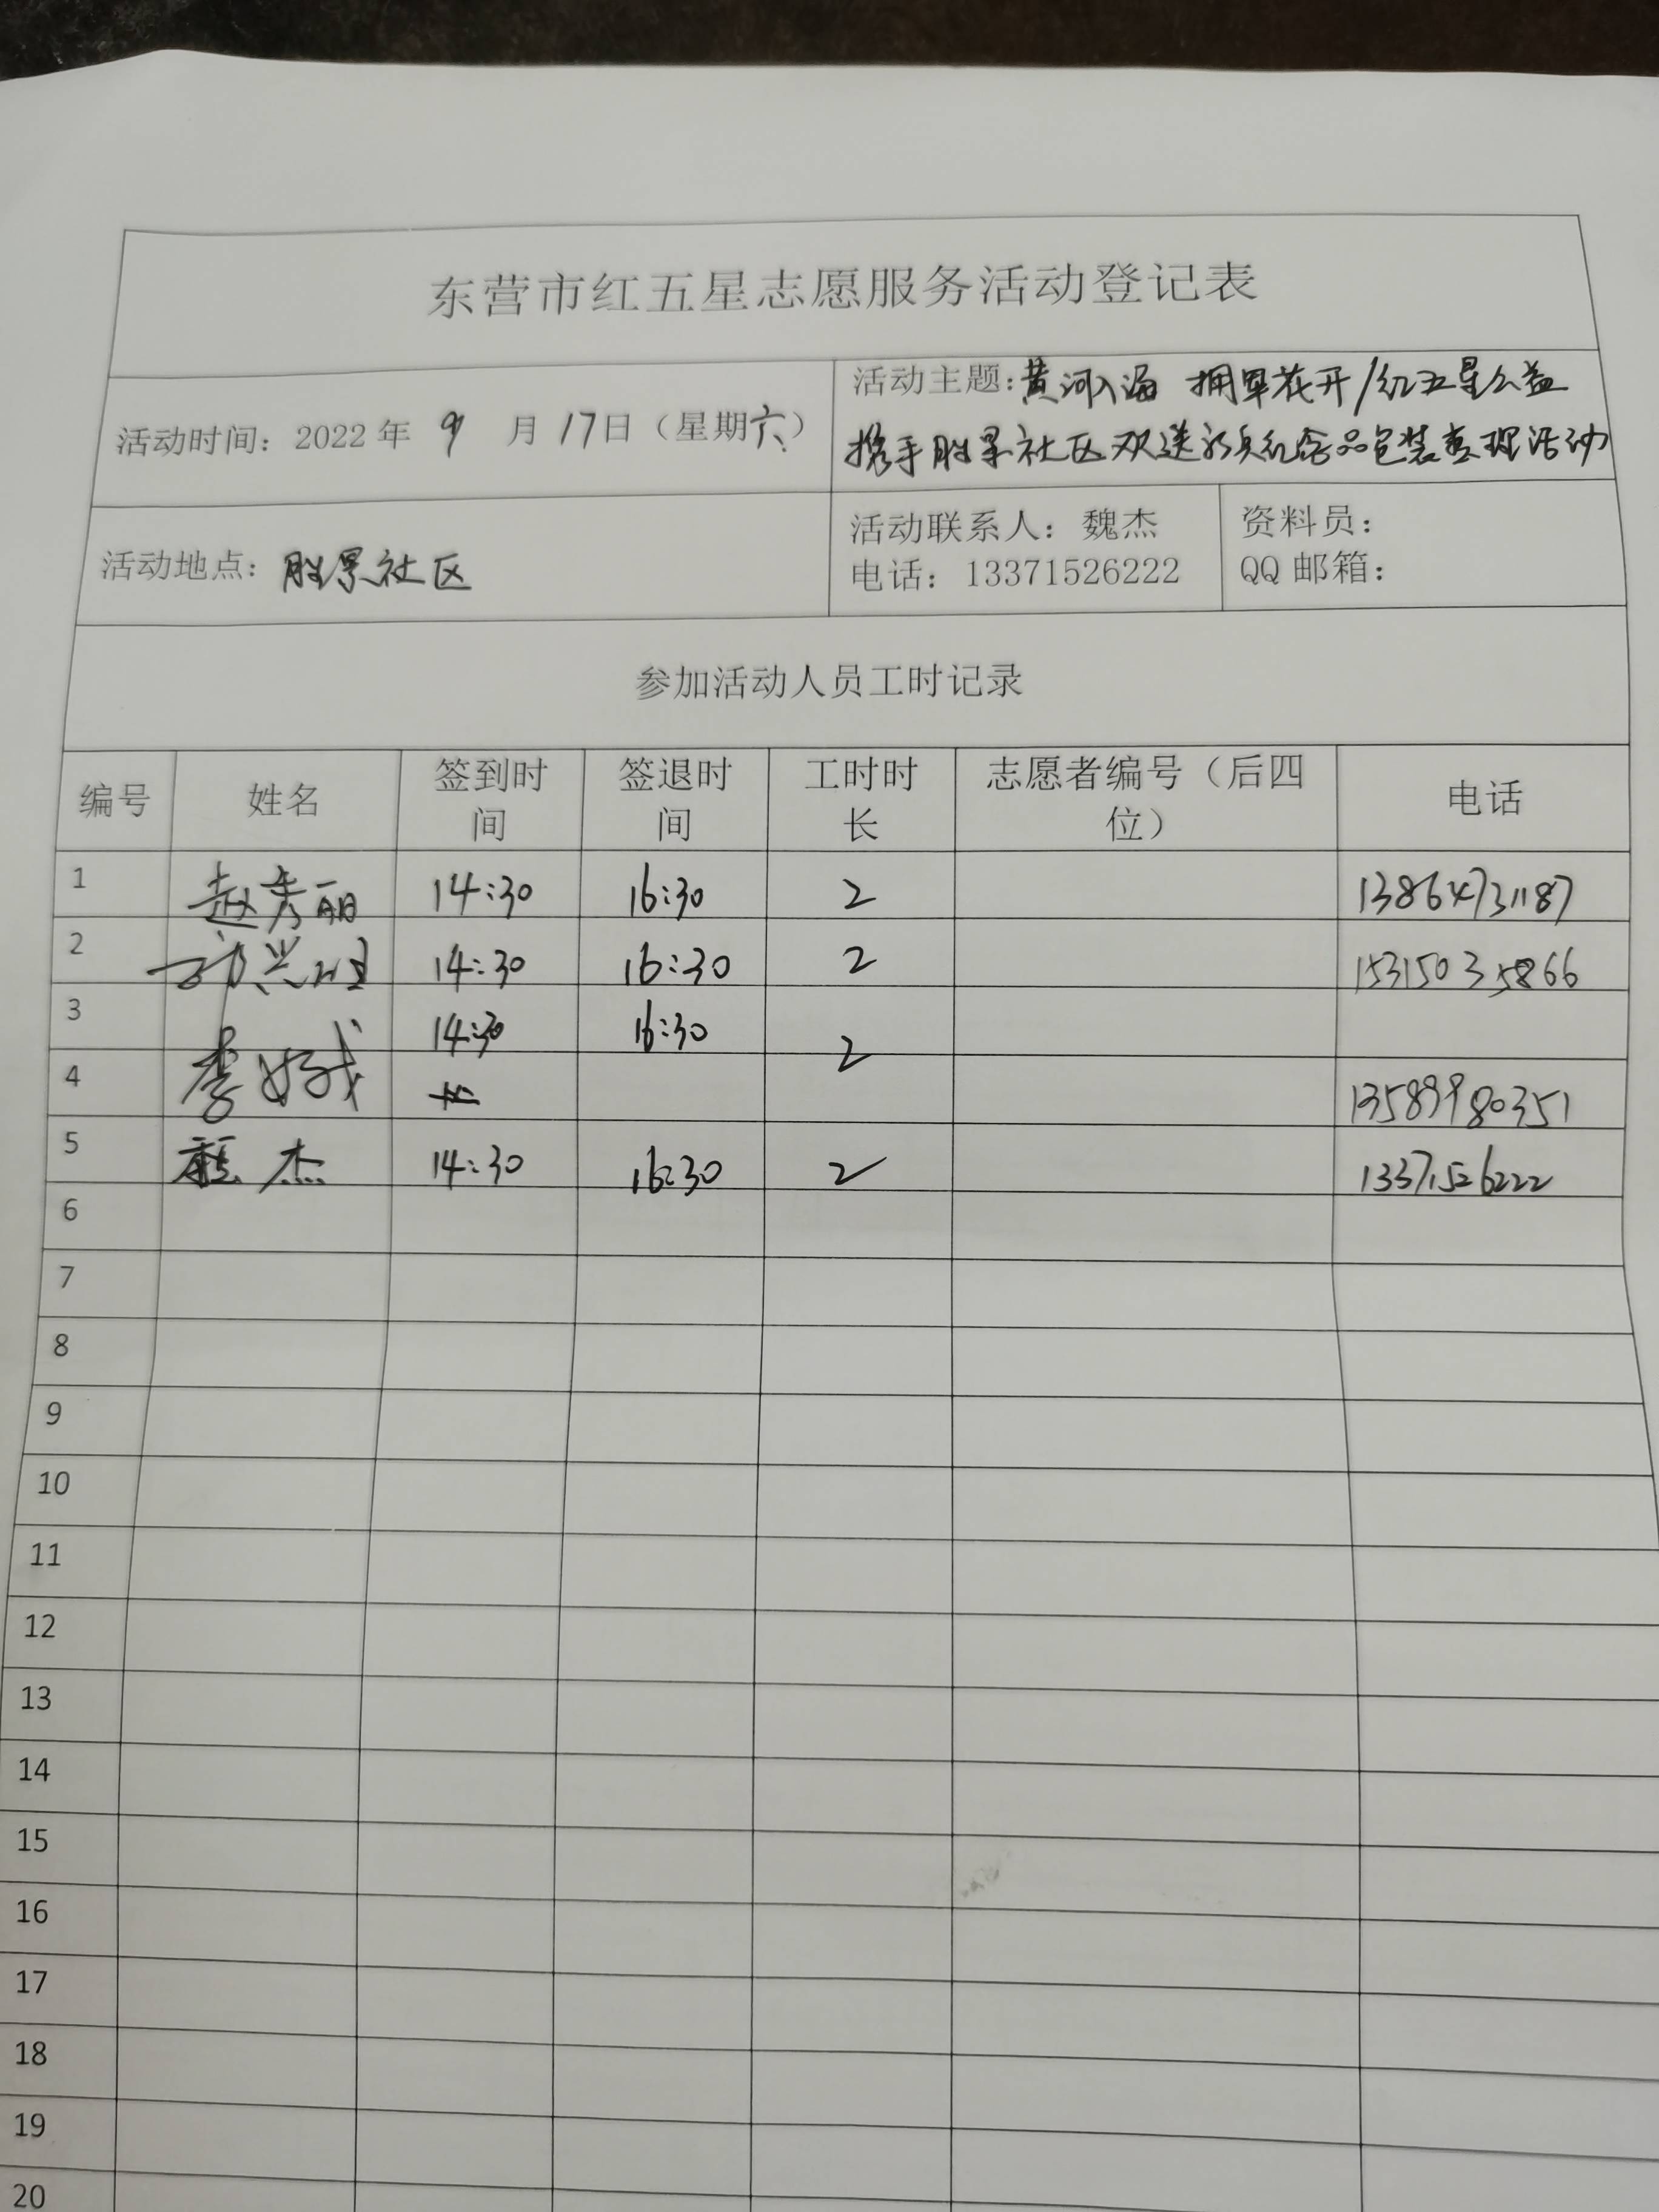 东营市红五星志愿服务活动登记表
活动时间：2022年 9 月 17日（星期六）
活动主题：黄河入海 拥军花开/红五星公益
携手胜景社区欢送新兵纪念品包装整理活动
活动地点：胜景社区
活动联系人：魏杰
电话：13371526222
资料员：
QQ邮箱：
参加活动人员工时记录
编号 姓名 签到时间 签退时间 工时时长 志愿者编号（后四位） 电话
1 赵秀丽 14:30 16:30 2 13864731187
2 14:30 16:30 2 15315035866
3 14:30 16:30 2
4 李 13589980351
5 魏杰 14:30 16:30 2 13371526222
6
7
8
9
10
11
12
13
14
15
16
17
18
19
20